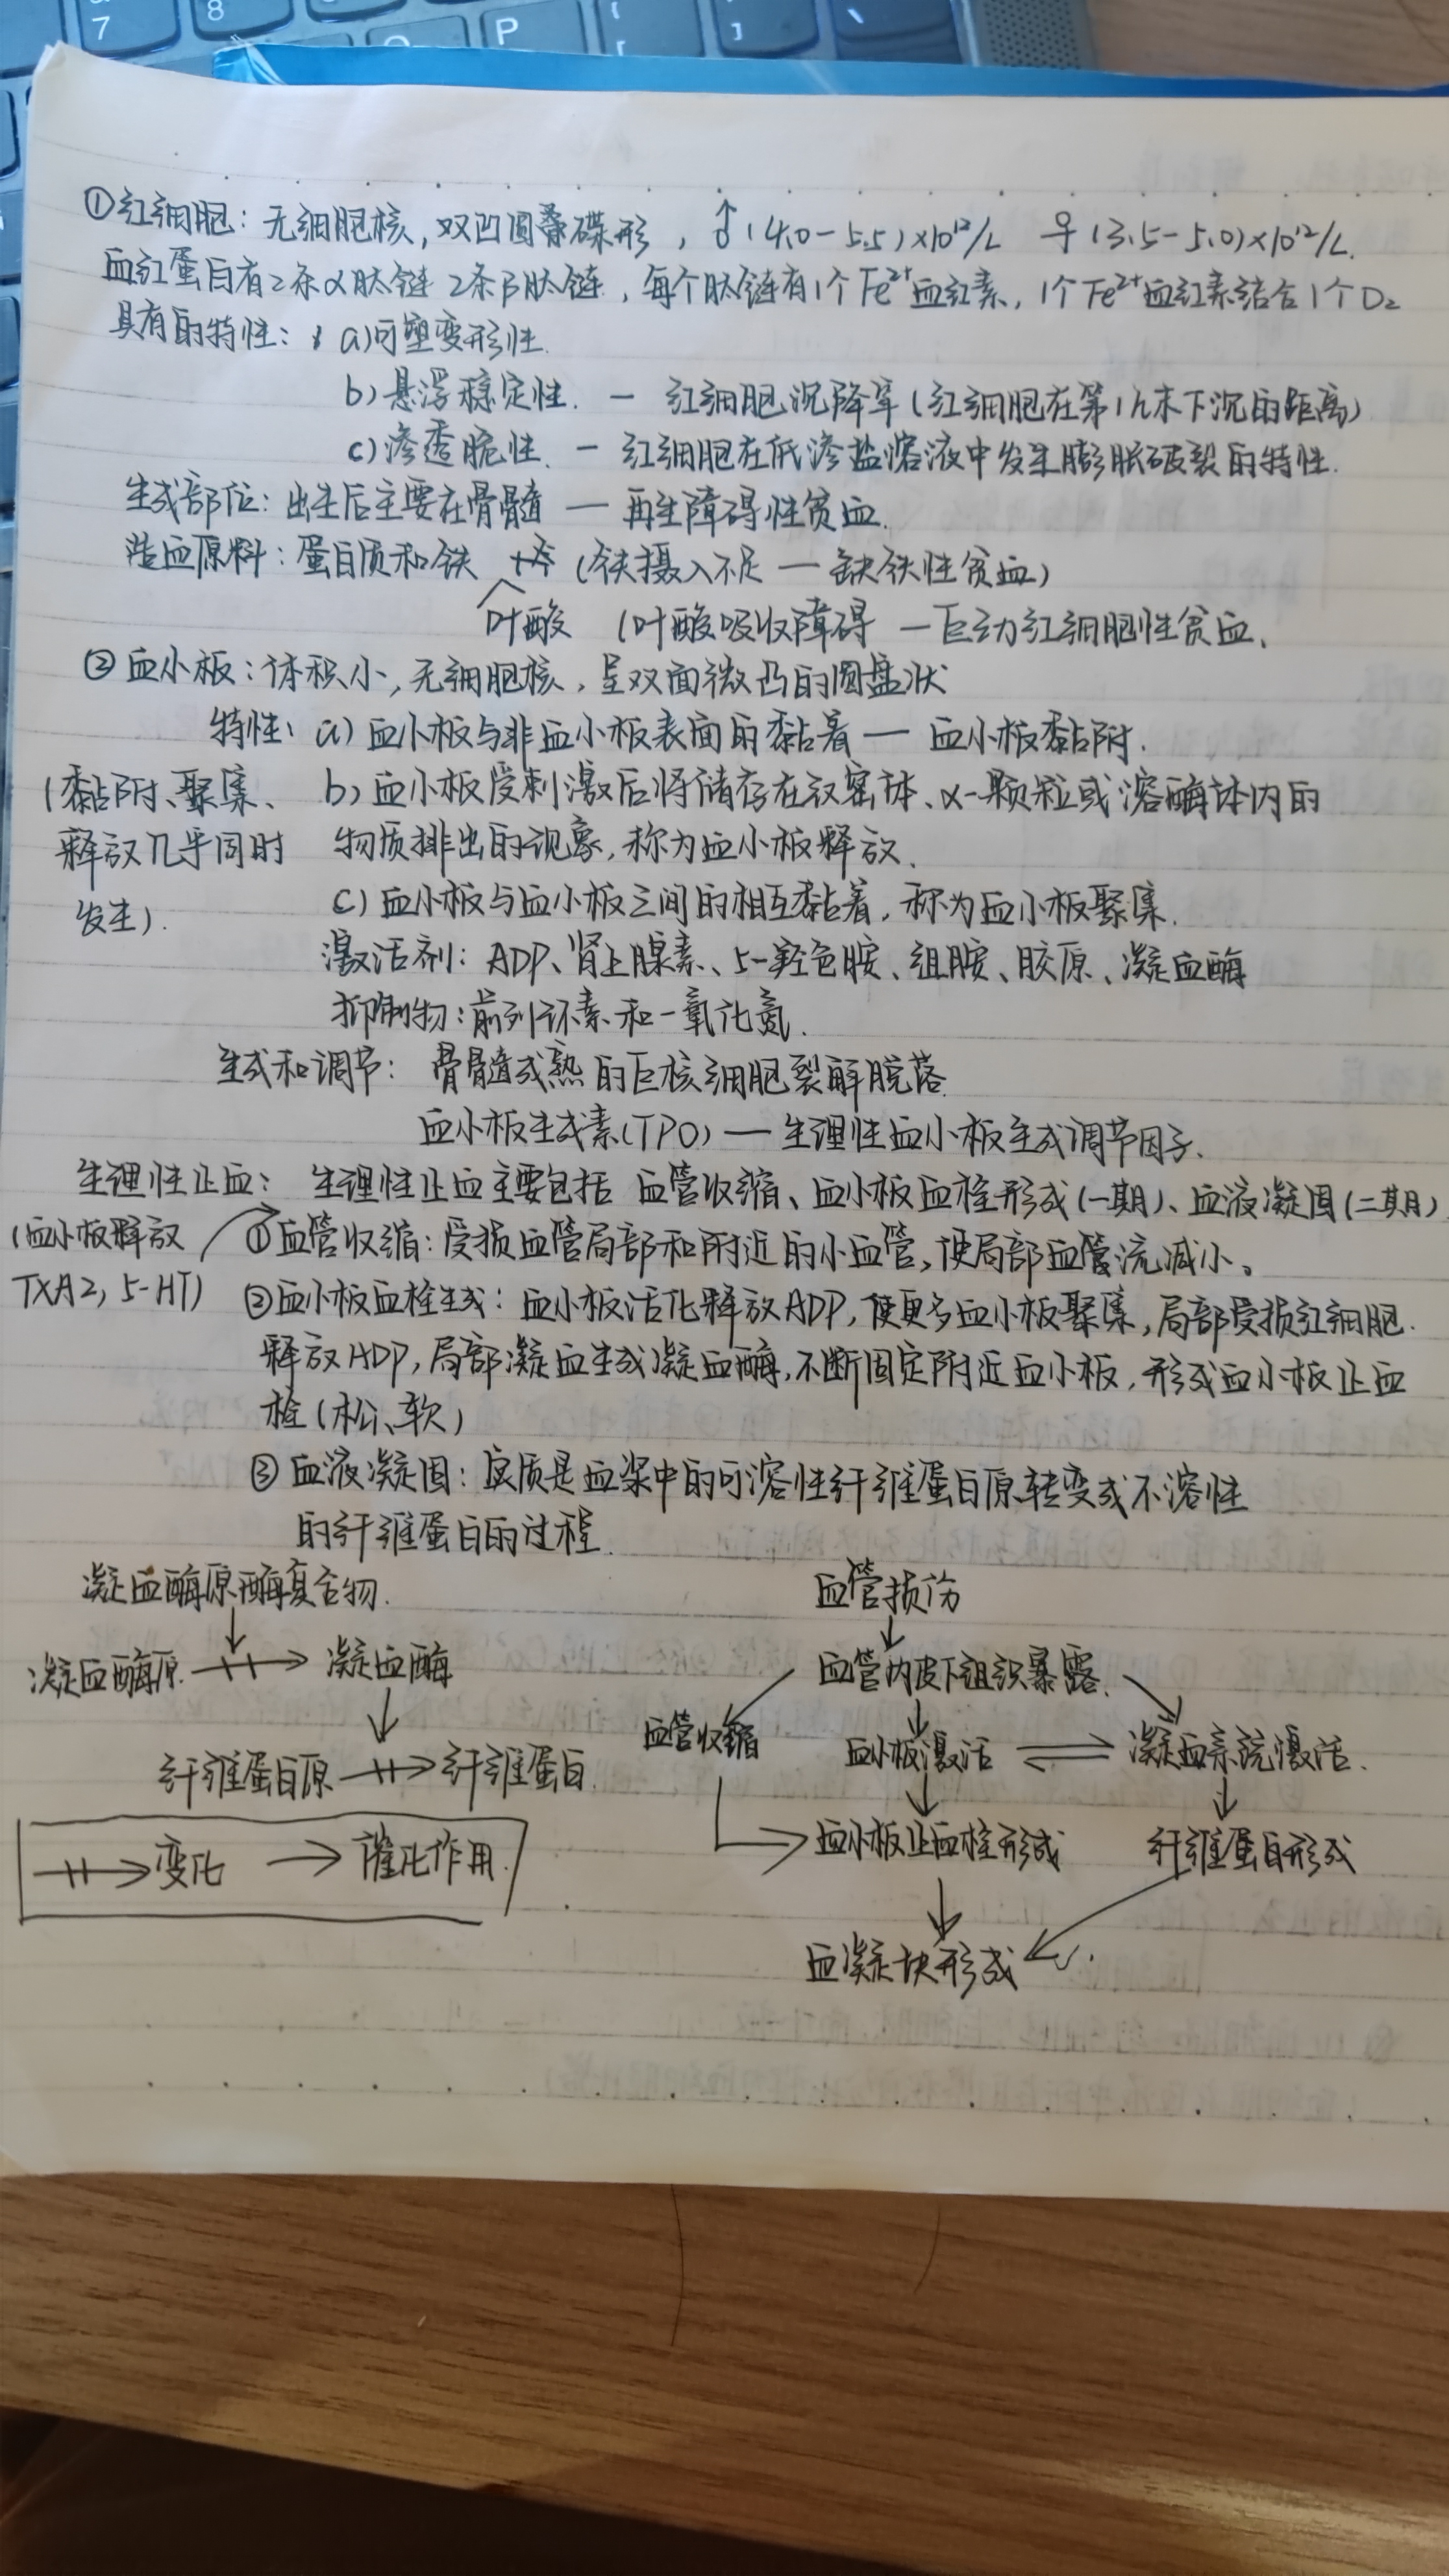 7 8 P [ ] \
①红细胞：无细胞核，双凹圆碟形，♂(4.0-5.5)×10¹²/L ♀(3.5-5.0)×10¹²/L.
血红蛋白有2条α肽链 2条β肽链，每个肽链有1个Fe²⁺血红素，1个Fe²⁺血红素结合1个O₂
具有的特性： a)可塑变形性.
b)悬浮稳定性. — 红细胞沉降率(红细胞在第1h末下沉的距离)
c)渗透脆性. — 红细胞在低渗盐溶液中发生膨胀破裂的特性.
生成部位：出生后主要在骨髓 — 再生障碍性贫血.
造血原料：蛋白质和铁 (铁摄入不足 — 缺铁性贫血)
叶酸 (叶酸吸收障碍 — 巨幼红细胞性贫血.
②血小板：体积小，无细胞核，呈双面微凸的圆盘状
特性：a)血小板与非血小板表面的黏着 — 血小板黏附.
(黏附、聚集、 b)血小板受刺激后将储存在致密体、α-颗粒或溶酶体内的
释放几乎同时 物质排出的现象，称为血小板释放.
发生). c)血小板与血小板之间的相互黏着，称为血小板聚集.
激活剂：ADP、肾上腺素、5-羟色胺、组胺、胶原、凝血酶
抑制物：前列环素和一氧化氮.
生成和调节： 骨髓成熟的巨核细胞裂解脱落
血小板生成素(TPO) — 生理性血小板生成调节因子.
生理性止血： 生理性止血主要包括 血管收缩、血小板血栓形成(一期)、血液凝固(二期)
(血小板释放 ①血管收缩：受损血管局部和附近的小血管，使局部血管流减小。
TXA2, 5-HT) ②血小板血栓生成：血小板活化释放ADP，使更多血小板聚集，局部受损红细胞.
释放ADP，局部凝血生成凝血酶，不断固定附近血小板，形成血小板止血
栓(松、软)
③血液凝固：实质是血浆中的可溶性纤维蛋白原转变成不溶性
的纤维蛋白的过程.
凝血酶原酶复合物.
↓
凝血酶原 → 凝血酶
↓
纤维蛋白原 → 纤维蛋白.
→ 变化 → 催化作用.
血管损伤
↓
血管内皮下组织暴露.
血管收缩 血小板激活 ⇌ 凝血系统激活.
→ 血小板止血栓形成 纤维蛋白形成
↓
血凝块形成